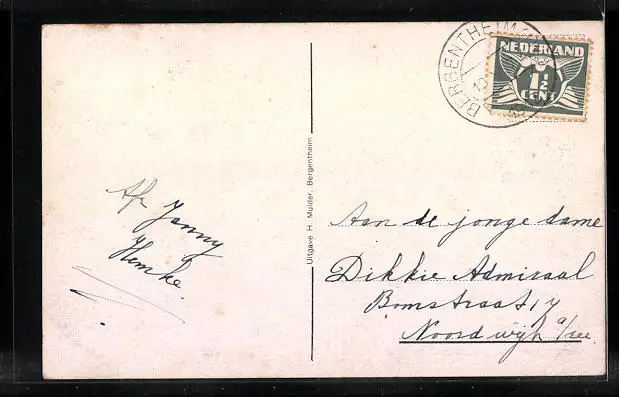 BERGENTHEIM
NEDERLAND
1½
CENT
Afz. Janny
Hemke.
Uitgave H. Mulder, Bergentheim
Aan de jonge dame
Dikkie Admiraal
Bomstraat 17
Noordwijk a/zee